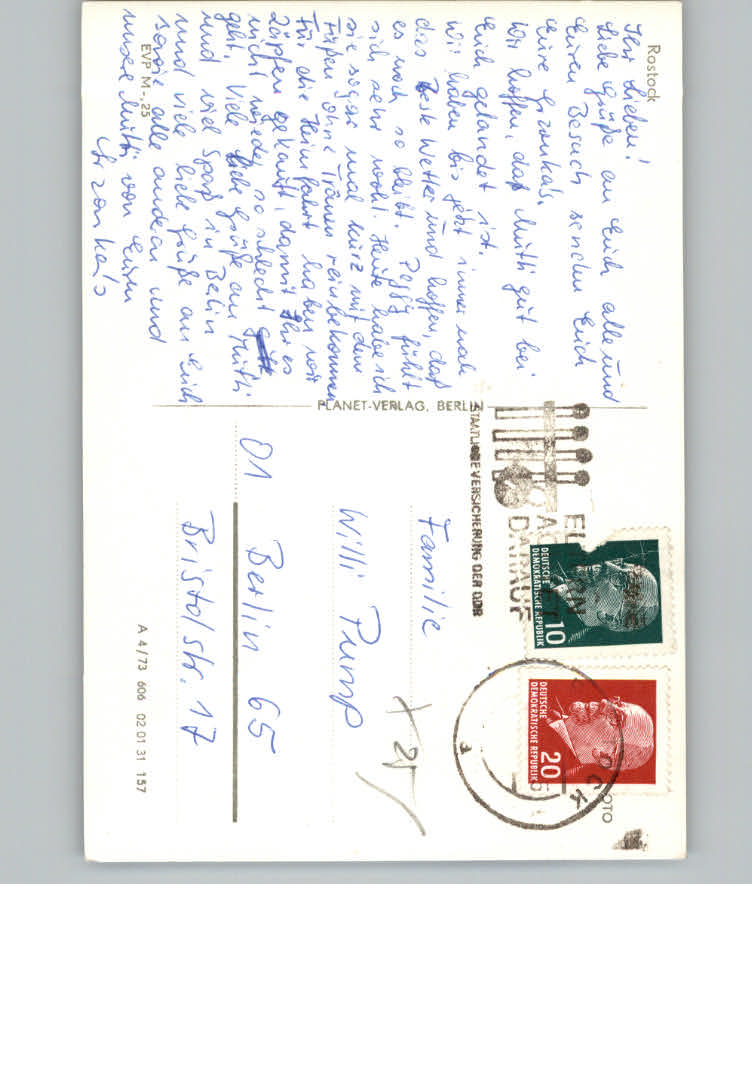 Rostock
Ihr Lieben!
Liebe Grüße an Euch alle und
Euren Besuch senden Euch
Eure Gronka's.
Wir hoffen, daß Mutti gut bei
Euch gelandet ist.
Wir haben bis jetzt immer noch
das beste Wetter und hoffen, daß
es noch so bleibt. Peggy fühlt
sich sehr wohl. Heute habe ich
sie sogar mal kurz mit den
Füßen ohne Tränen reinbekommen
Für die Heimfahrt haben wir
Zäpfen gekauft, damit ihr es
nicht wieder so schlecht
geht. Viele liebe Grüße an Mutti
und viel Spaß in Berlin
und viele liebe Grüße an Euch
sowie alle anderen und
unsere Mutti von Euren
Gronka's
EVP M -,25
PLANET-VERLAG, BERLIN
STAATLICHE VERSICHERUNG DER DDR
DARAUF
DEUTSCHE
DEMOKRATISCHE REPUBLIK
10
DEUTSCHE
DEMOKRATISCHE REPUBLIK
20
OCK
a
OTO
Familie
Willi Pump
01 Berlin 65
Bristolstr. 17
A 4/73 606 02 01 31 157